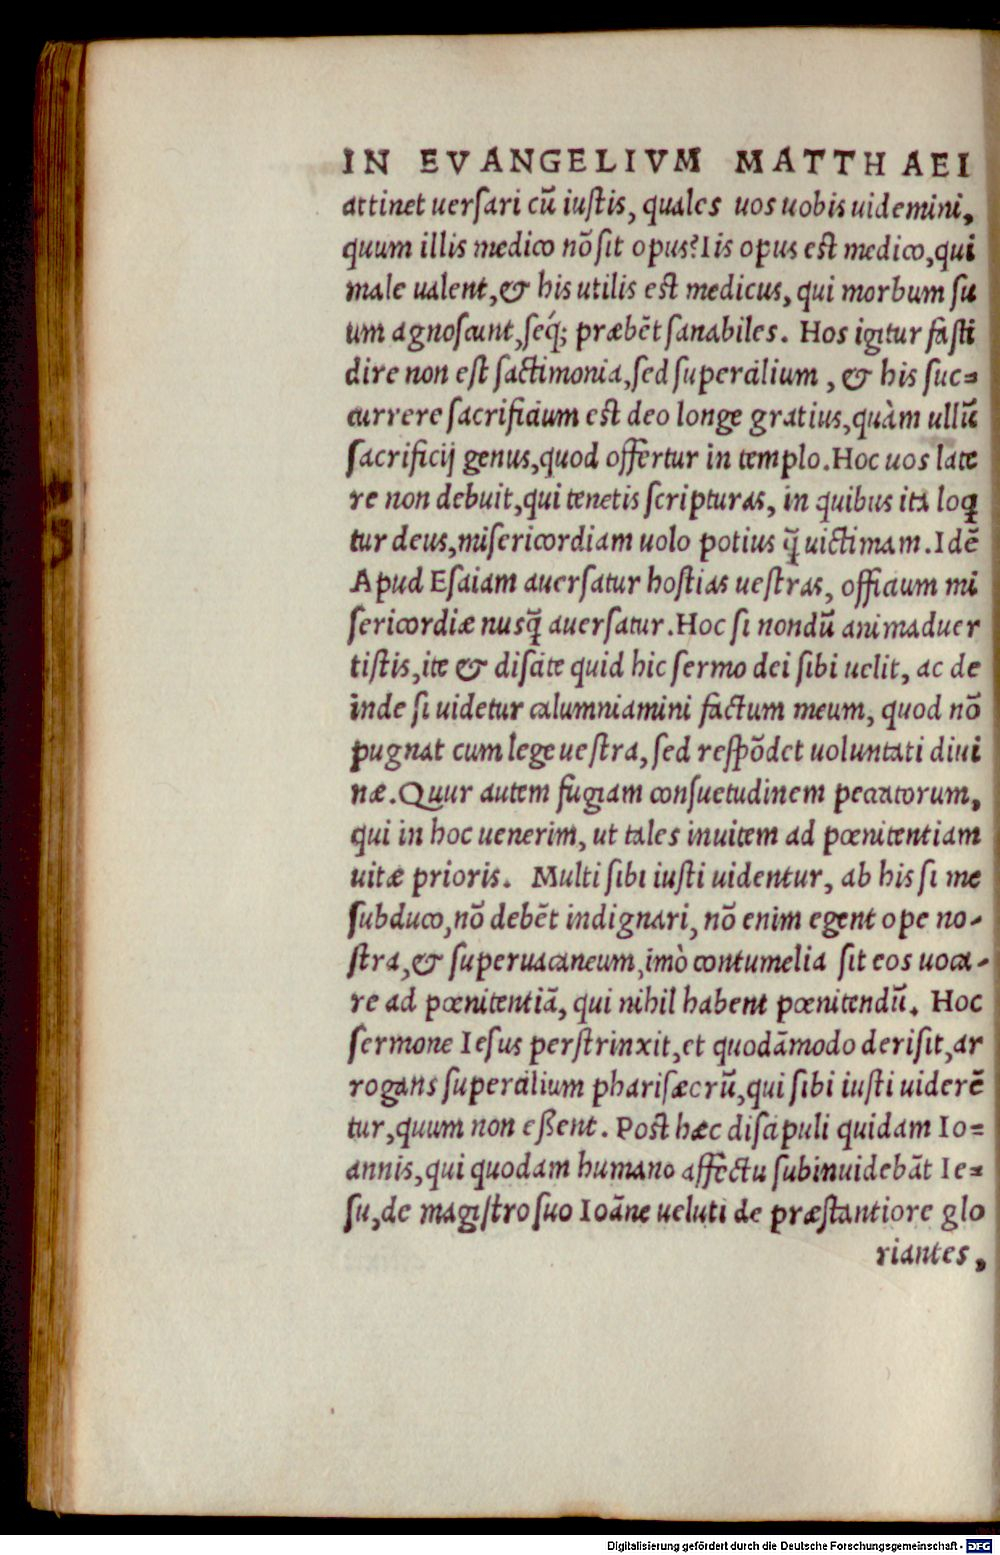 IN EVANGELIVM MATTHAEI
attinet uersari cũ iustis, quales uos uobis uidemini,
quum illis medico nõ sit opus? Iis opus est medico, qui
male ualent, & his utilis est medicus, qui morbum su
um agnoscunt, seq́; præbẽt sanabiles. Hos igitur fasti
dire non est sactimonia, sed supercilium, & his suc=
currere sacrificium est deo longe gratius, quàm ullũ
sacrificij genus, quod offertur in templo. Hoc uos late
re non debuit, qui tenetis scripturas, in quibus ita loꝗ
tur deus, misericordiam uolo potius q̃ uictimam. Idẽ
Apud Esaiam auersatur hostias uestras, officium mi
sericordiæ nusq̃ auersatur. Hoc si nondũ animaduer
tistis, ite & discite quid hic sermo dei sibi uelit, ac de
inde si uidetur calumniamini factum meum, quod nõ
pugnat cum lege uestra, sed respõdet uoluntati diui
næ. Quur autem fugiam consuetudinem peccatorum,
qui in hoc uenerim, ut tales inuitem ad pœnitentiam
uitæ prioris. Multi sibi iusti uidentur, ab his si me
subduco, nõ debẽt indignari, nõ enim egent ope no-
stra, & superuacaneum, imò contumelia sit eos uoca-
re ad pœnitentiã, qui nihil habent pœnitendũ. Hoc
sermone Iesus perstrinxit, et quodãmodo derisit, ar
rogans supercilium pharisæcrũ, qui sibi iusti uiderẽ
tur, quum non eßent. Post hæc discipuli quidam Io=
annis, qui quodam humano affectu subinuidebãt Ie=
su, de magistro suo Ioãne ueluti de præstantiore glo
riantes,
Digitalisierung gefördert durch die Deutsche Forschungsgemeinschaft - DFG